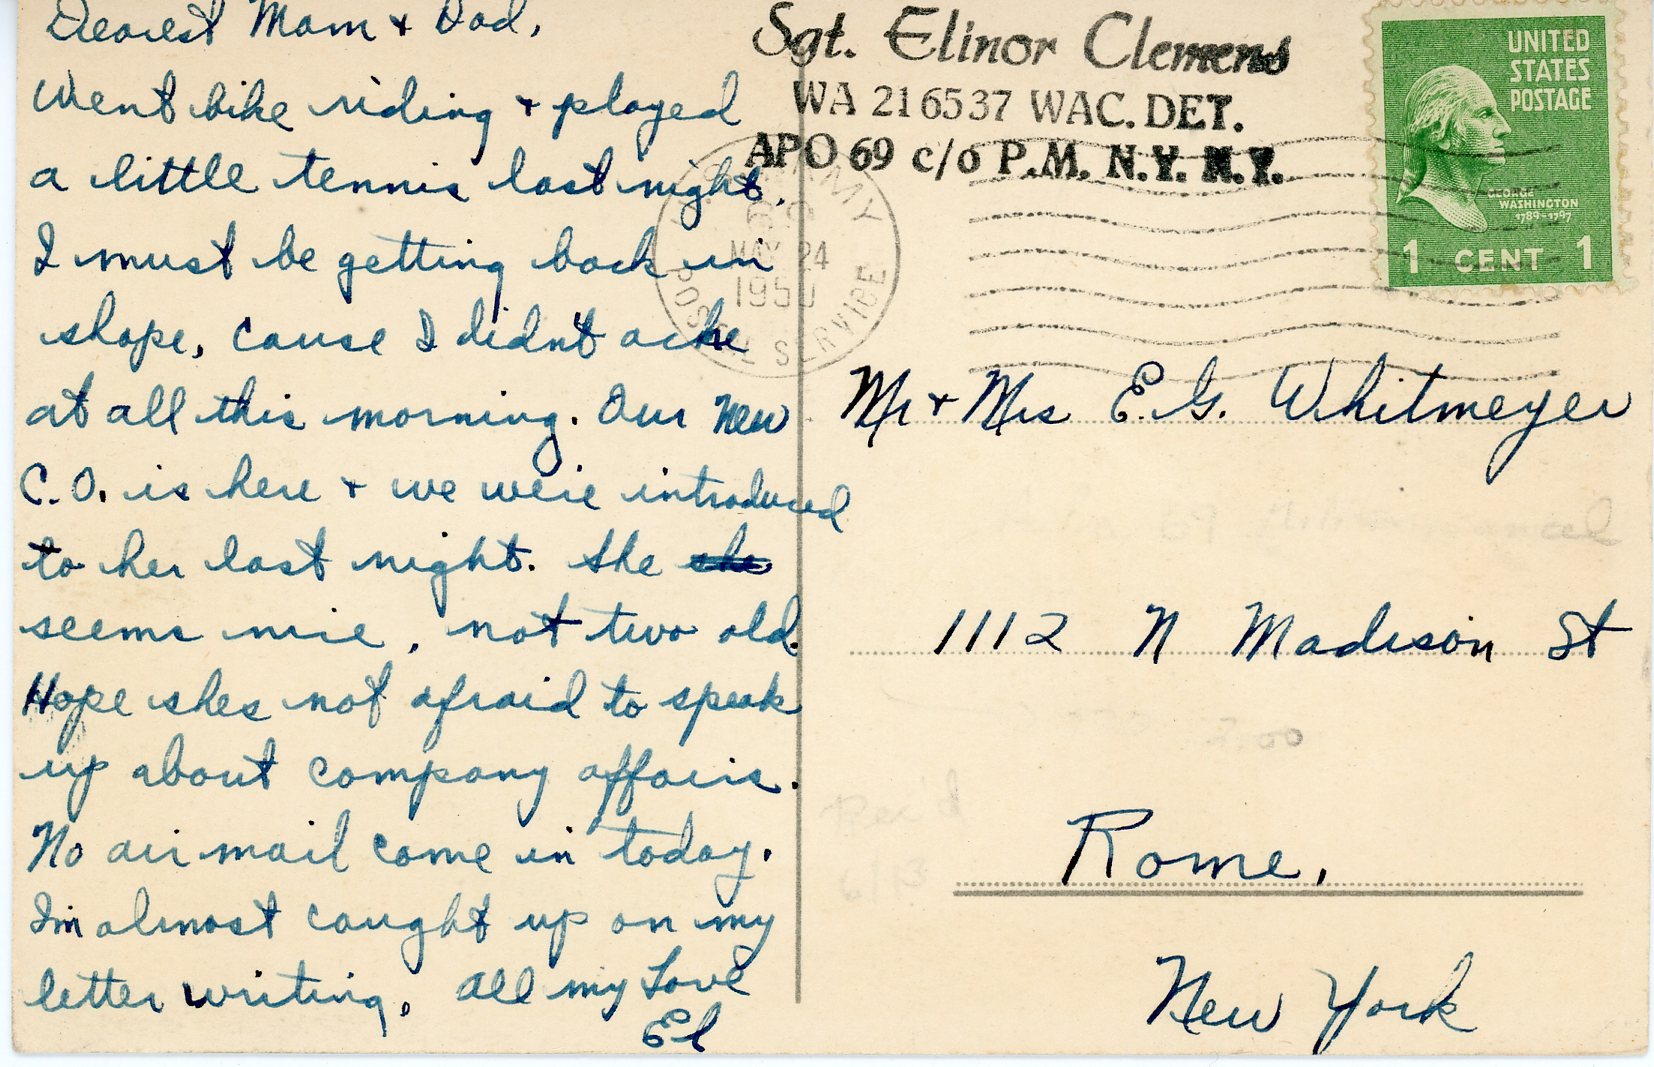 Dearest Mom + Dad,
Went bike riding + played
a little tennis last night.
I must be getting back in
shape, cause I didn't ache
at all this morning. Our New
C.O. is here + we were introduced
to her last night. She she
seems nice, not two old.
Hope shes not afraid to speak
up about company affairs.
No air mail come in today.
I'm almost caught up on my
letter writing. All my Love
El
Sgt. Elinor Clemens
WA 216537 WAC. DET.
APO 69 c/o P.M. N.Y. N.Y.
ARMY
MAY 24
1950
POSTAL SERVICE
UNITED
STATES
POSTAGE
GEORGE
WASHINGTON
1789-1797
1 CENT 1
Mr + Mrs E.G. Whitmeyer
1112 N Madison St
Rome,
New York
Rec'd
6/13